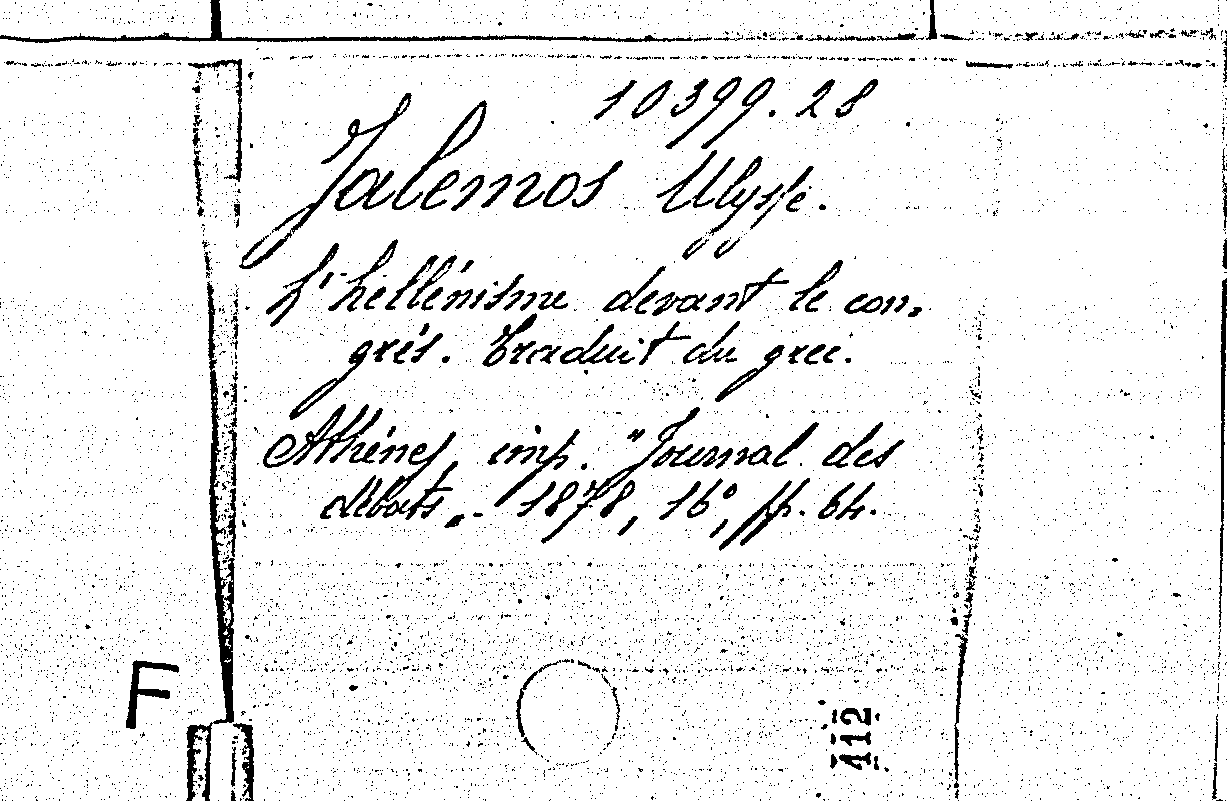 10399.28
Jalemos Ulysse.
L'hellénisme devant le con-
grés. Traduit du grec.
Athénes, imp. "Journal des
débats„. 1878, 16°, pp. 64.
F
112